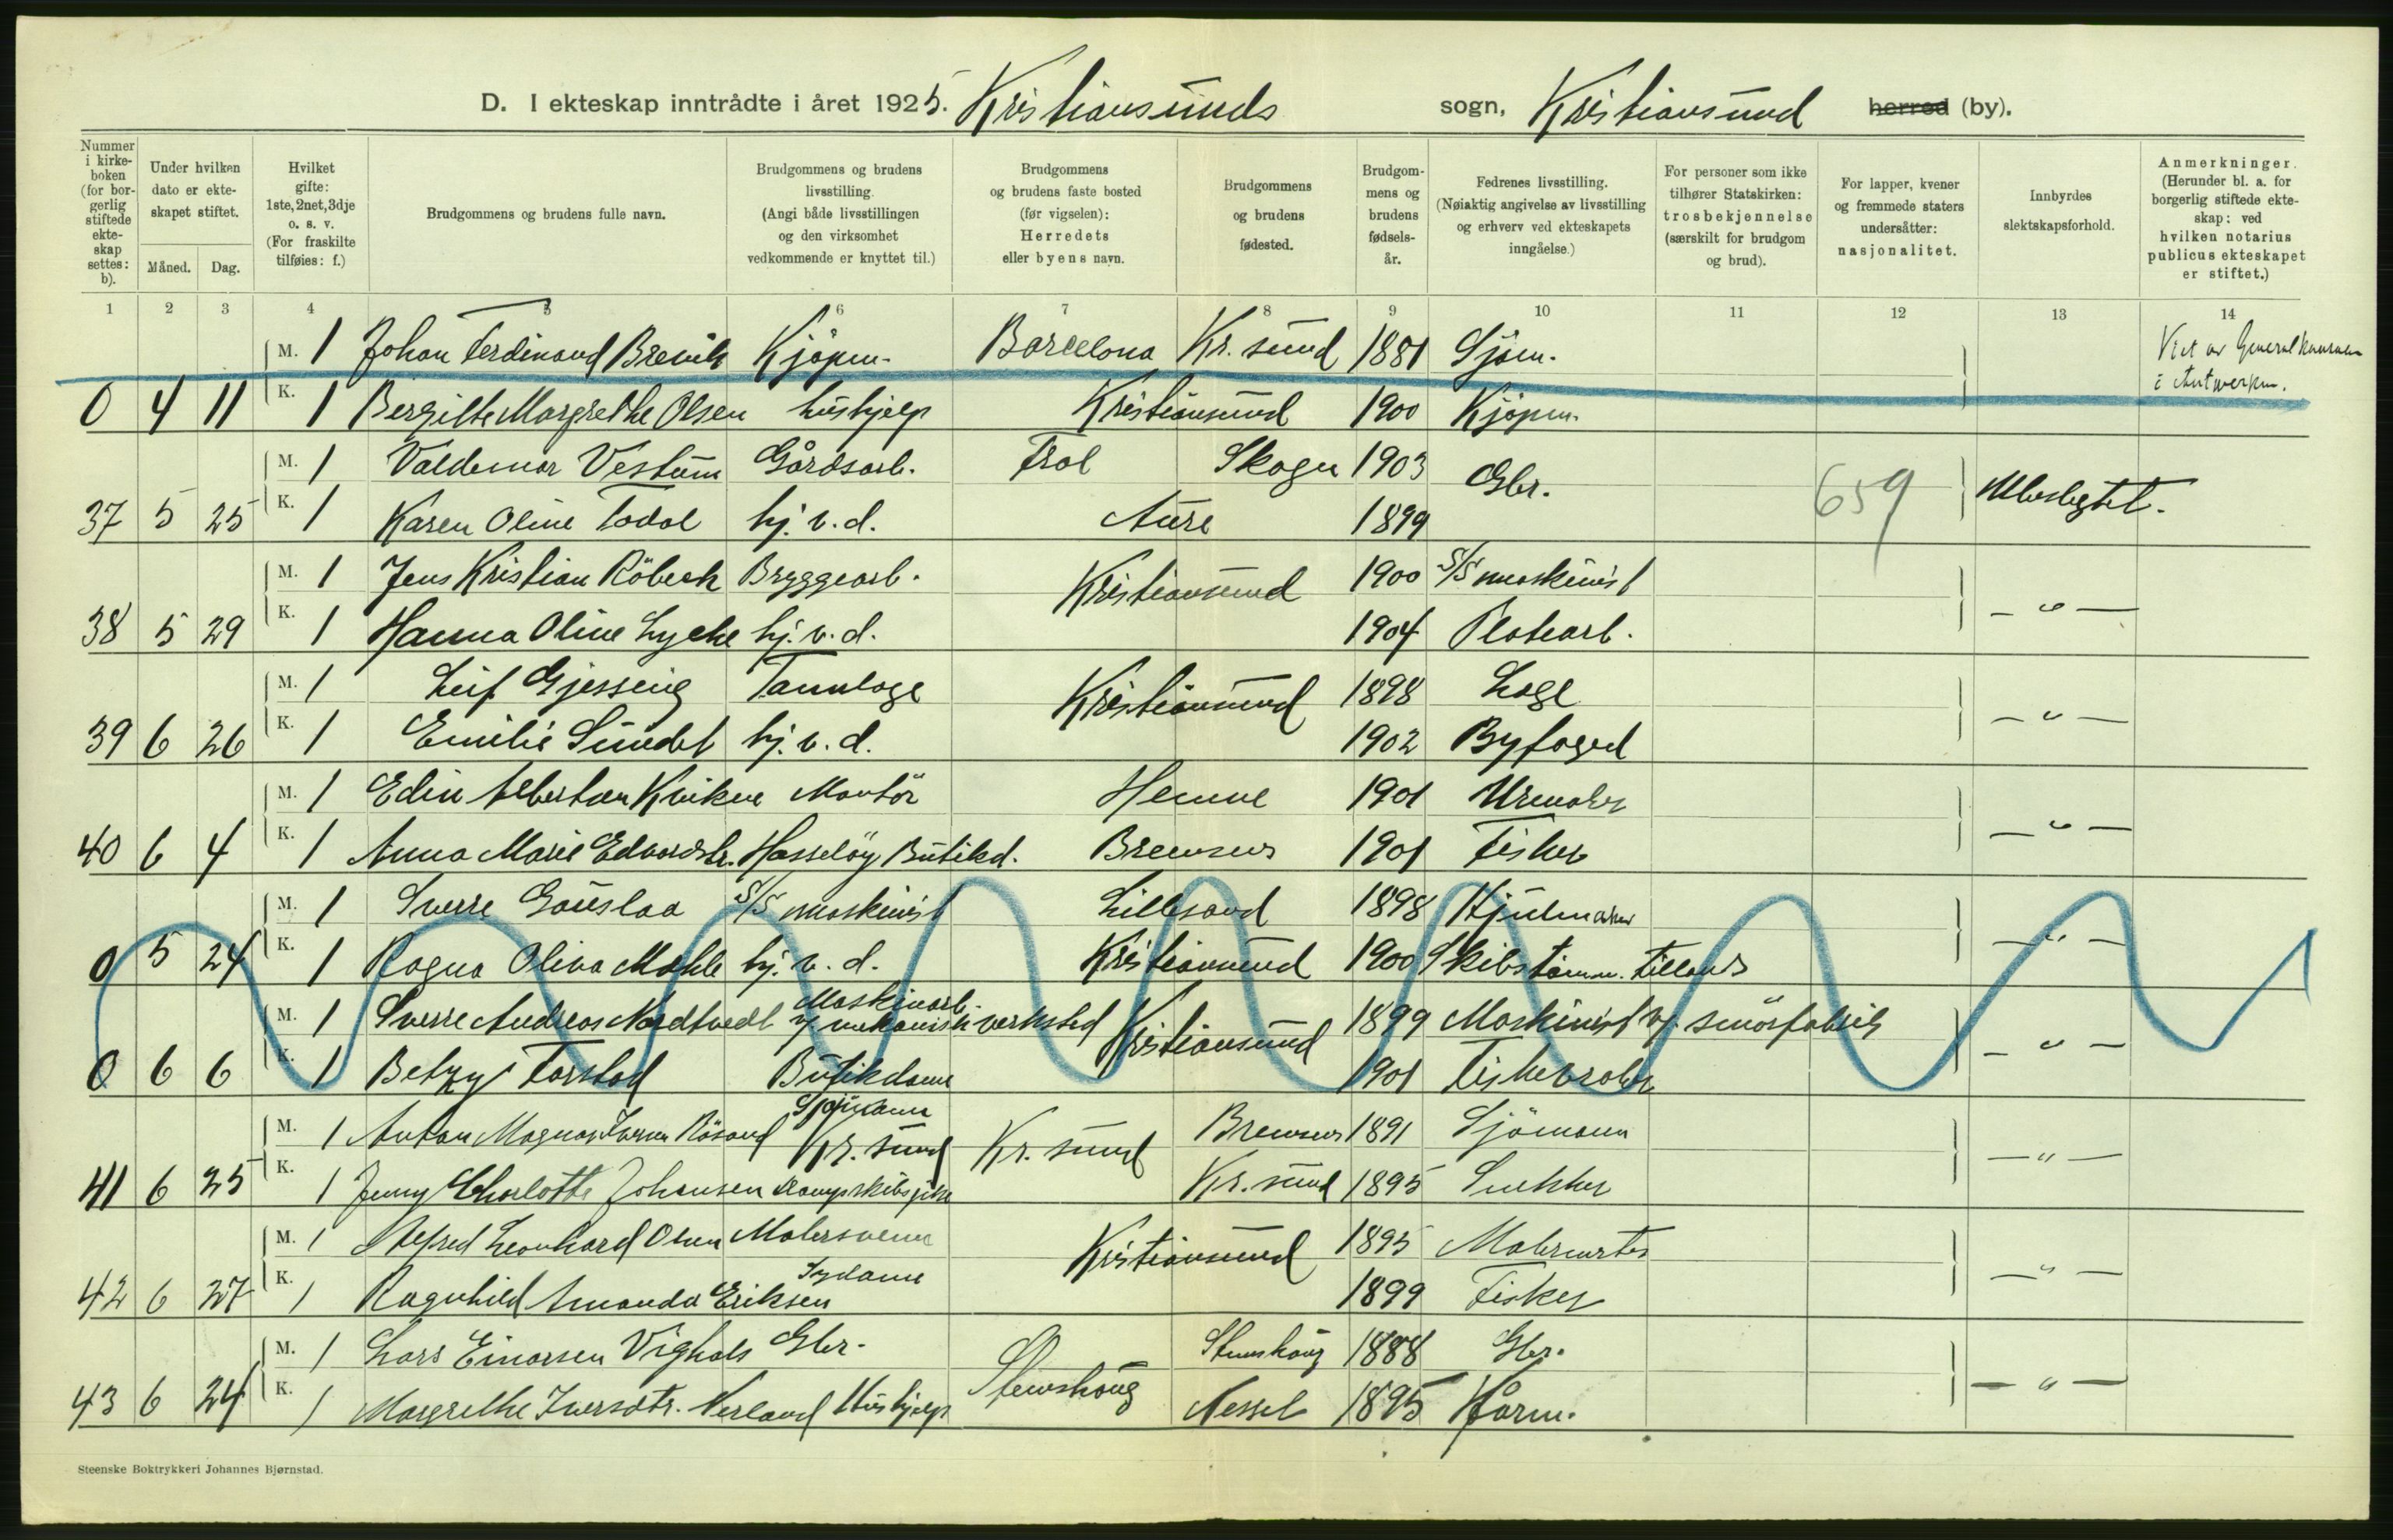 D. I ekteskap inntrådte i året 1925. Kristiansunds sogn, Kristiansund herred (by).
Nummer i kirkeboken (for borgerlig stiftede ekteskap settes: b).
Under hvilken dato er ekteskapet stiftet.
Måned. Dag.
Hvilket gifte: 1ste, 2net, 3dje o. s. v. (For fraskilte tilføies: f.)
Brudgommens og brudens fulle navn.
Brudgommens og brudens livsstilling. (Angi både livsstillingen og den virksomhet vedkommende er knyttet til.)
Brudgommens og brudens faste bosted (før vigselen): Herredets eller byens navn.
Brudgommens og brudens fødested.
Brudgommens og brudens fødselsår.
Fedrenes livsstilling. (Nøiaktig angivelse av livsstilling og erhverv ved ekteskapets inngåelse.)
For personer som ikke tilhører Statskirken: trosbekjennelse (særskilt for brudgom og brud).
For lapper, kvener og fremmede staters undersåtter: nasjonalitet.
Innbyrdes slektskapsforhold.
Anmerkninger. (Herunder bl. a. for borgerlig stiftede ekteskap: ved hvilken notarius publicus ekteskapet er stiftet.)
1 2 3 4 5 6 7 8 9 10 11 12 13 14
M. 1 Johan Ferdinand Brevik Kjøpm. Barcelona Kr.sund 1881 Sjøm. Viet av Generalkonsulen
i Antwerpen.
0 4 11 K. 1 Bergitte Margrethe Olsen hushjelp Kristiansund 1900 Kjøpm.
M. 1 Valdemar Vestum Gårdsarb. Frol Skogn 1903 Gbr. 659 Ubeslegtet.
37 5 25 K. 1 Karen Oline Todal hj. v. d. Aure 1899
M. 1 Jens Kristian Röbech Bryggearb. Kristiansund 1900 S/S maskinist
38 5 29 K. 1 Hanna Oline Lyche hj. v. d. 1904 Platearb. — " —
M. 1 Leif Gjessing Tannlæge Kristiansund 1898 Læge
39 6 26 K. 1 Emilie Sundet hj. v. d. 1902 Byfoged — " —
M. 1 Edin Albertsen Kvikne Montör Hemne 1901 Urmaker
40 6 4 K. 1 Anna Marie Edvardstr. Hasselöy Butikd. Bremsnes 1901 Fisker — " —
M. 1 Sverre Gauslaa S/S maskinist Lillesand 1898 Hjulmaker
0 5 24 K. 1 Ragna Oliva Mahle hj. v. d. Kristiansund 1900 Skibstømm. — " —
M. 1 Sverre Andreas Nordtvedt Maskinarb. v/ mekanisk verksted Kristiansund 1899 Maskinist v/ smörfabrik
0 6 6 K. 1 Betzy Farstad Butikdame 1901 Fiskevraker — " —
M. 1 Anton Magnus Iversen Rösand Sjömann Kr. sund Kr. sund Bremsnes 1891 Sjömann
41 6 25 K. 1 Jenny Charlotte Johansen 
Kr. sund 1895 Snekker — " —
M. 1 Alfred Leonhard Olsen Malersvenn Kristiansund 1895 Malermester
42 6 27 K. 1 Ragnhild Amanda Eriksen Sydame 1899 Fisker — " —
M. 1 Lars Einarsen Vighals Gbr. Stemshaug Stemshaug 1888 Gbr.
43 6 24 K. 1 Margrethe Iversdtr. Nerland Hushjelp Nesset 1895 Kårm. — " —
Steenske Boktrykkeri Johannes Bjørnstad.